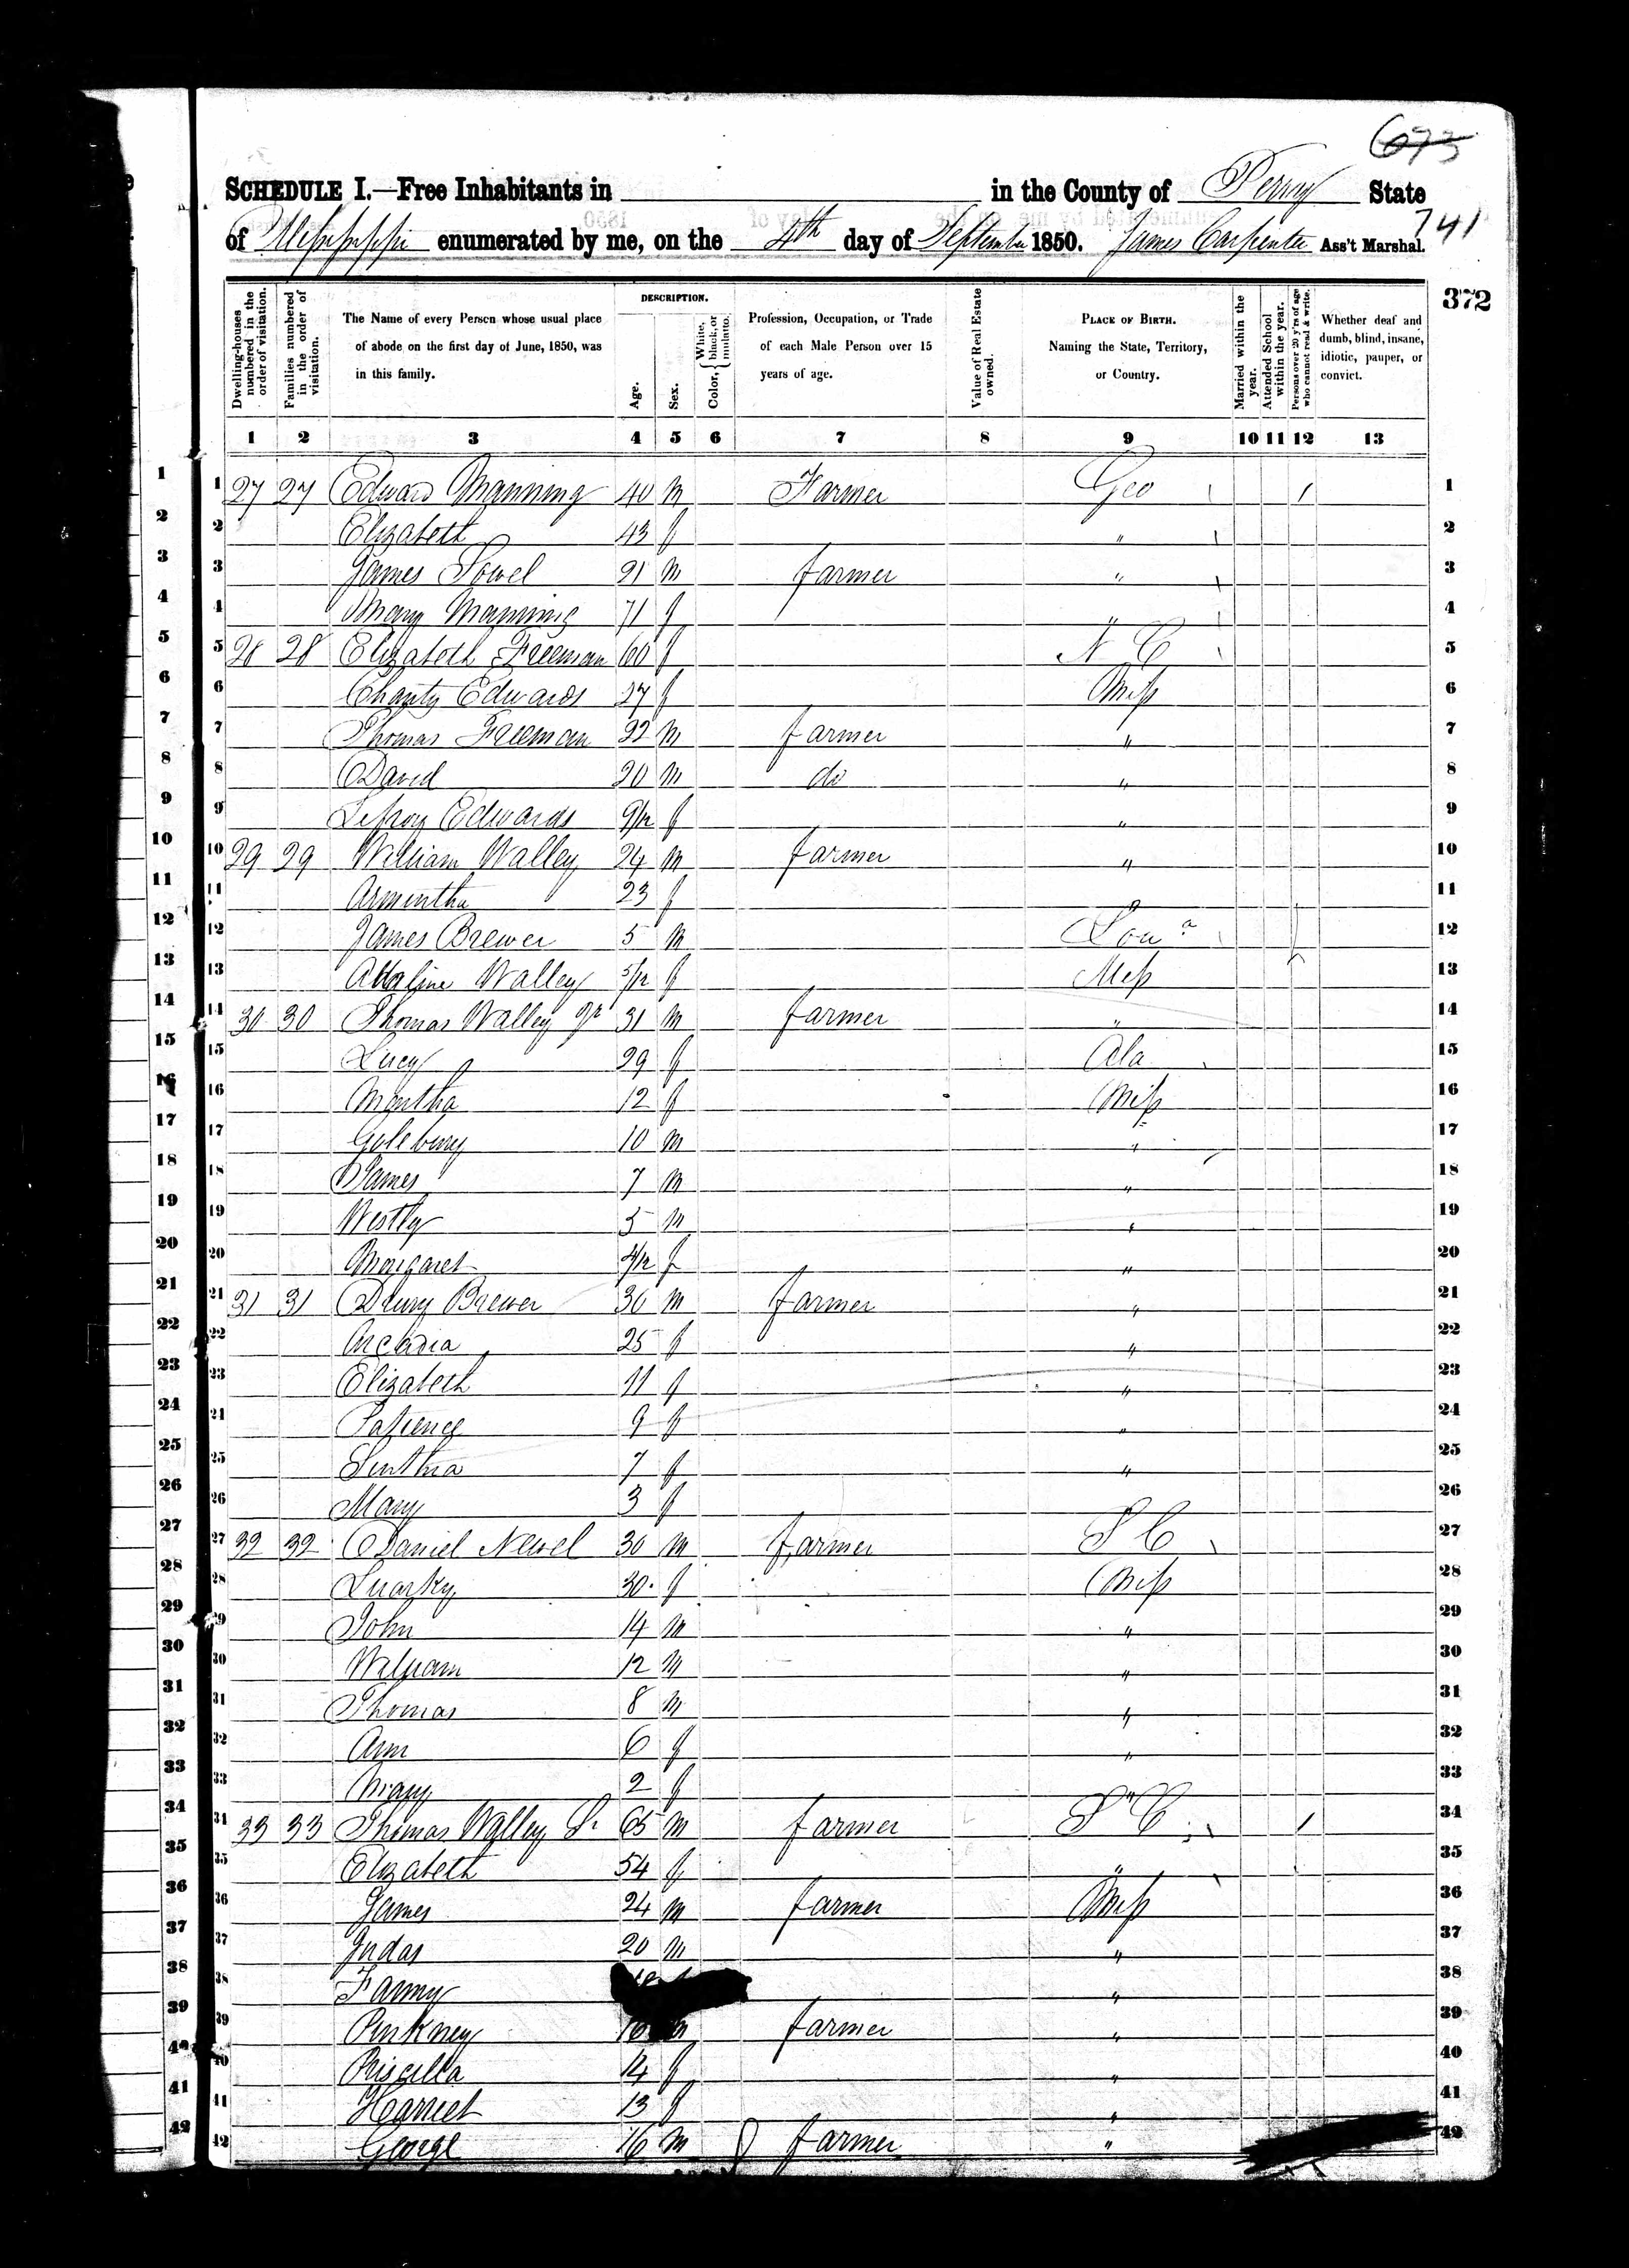 673
SCHEDULE I.—Free Inhabitants in in the County of Perry State
of Mississippi enumerated by me, on the 4th day of September 1850. James Carpenter Ass't Marshal.
741
372
Dwelling-houses numbered in the order of visitation.
Families numbered in the order of visitation.
The Name of every Person whose usual place of abode on the first day of June, 1850, was in this family.
DESCRIPTION.
Age.
Sex.
Color, { White, black, or mulatto.
Profession, Occupation, or Trade of each Male Person over 15 years of age.
Value of Real Estate owned.
PLACE OF BIRTH.
Naming the State, Territory, or Country.
Married within the year.
Attended School within the year.
Persons over 20 y'rs of age who cannot read & write.
Whether deaf and dumb, blind, insane, idiotic, pauper, or convict.
1 2 3 4 5 6 7 8 9 10 11 12 13
1 27 27 Edward Manning 40 m Farmer Geo / 1
2 Elizabeth 43 f " 2
3 James Sowel 21 m farmer " 3
4 Mary Manning 71 f " 4
5 28 28 Elizabeth Freeman 60 f N C 5
6 Charity Edwards 27 f Miss 6
7 Thomas Freeman 22 m farmer " 7
8 David 20 m do " 8
9 Edwards 9/12 f " 9
10 29 29 William Walley 24 m farmer " 10
11 Armintha 23 f " 11
12 James Brewer 5 m Lou a 12
13 Adaline Walley 5/12 f Miss 13
14 30 30 Thomas Walley Jr 31 m farmer " 14
15 Lucy 29 f Ala 15
16 Martha 12 f Miss 16
17 Golsbury 10 m " 17
18 James 7 m " 18
19 Westly 5 m " 19
20 Margaret 4/12 f " 20
21 31 31 Drury Brewer 30 m farmer " 21
22 Arcadia 25 f " 22
23 Elizabeth 11 f " 23
24 Patience 9 f " 24
25 Sinthia 7 f " 25
26 Mary 3 f 26
27 32 32 Daniel Newel 30 m farmer S C 27
28 30 f Miss 28
29 John 14 m " 29
30 William 12 m " 30
31 Thomas 8 m " 31
32 Ann 6 f " 32
33 Mary 2 f " 33
34 33 33 Thomas Walley Sr 65 m farmer S C / 34
35 Elizabeth 54 f " 35
36 James 24 m farmer Miss 36
37 Judas 20 m " 37
38 Fanny " 38
39 Pinkney 16 m farmer " 39
40 Priscilla 14 f " 40
41 Harriet 13 f " 41
42 George 16 m farmer " 42